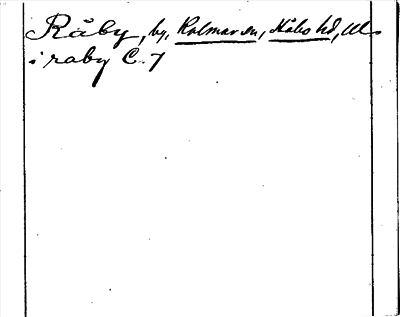 Råby, by, Kalmar sn, Håbo hd, Ul.
i raby C. 7